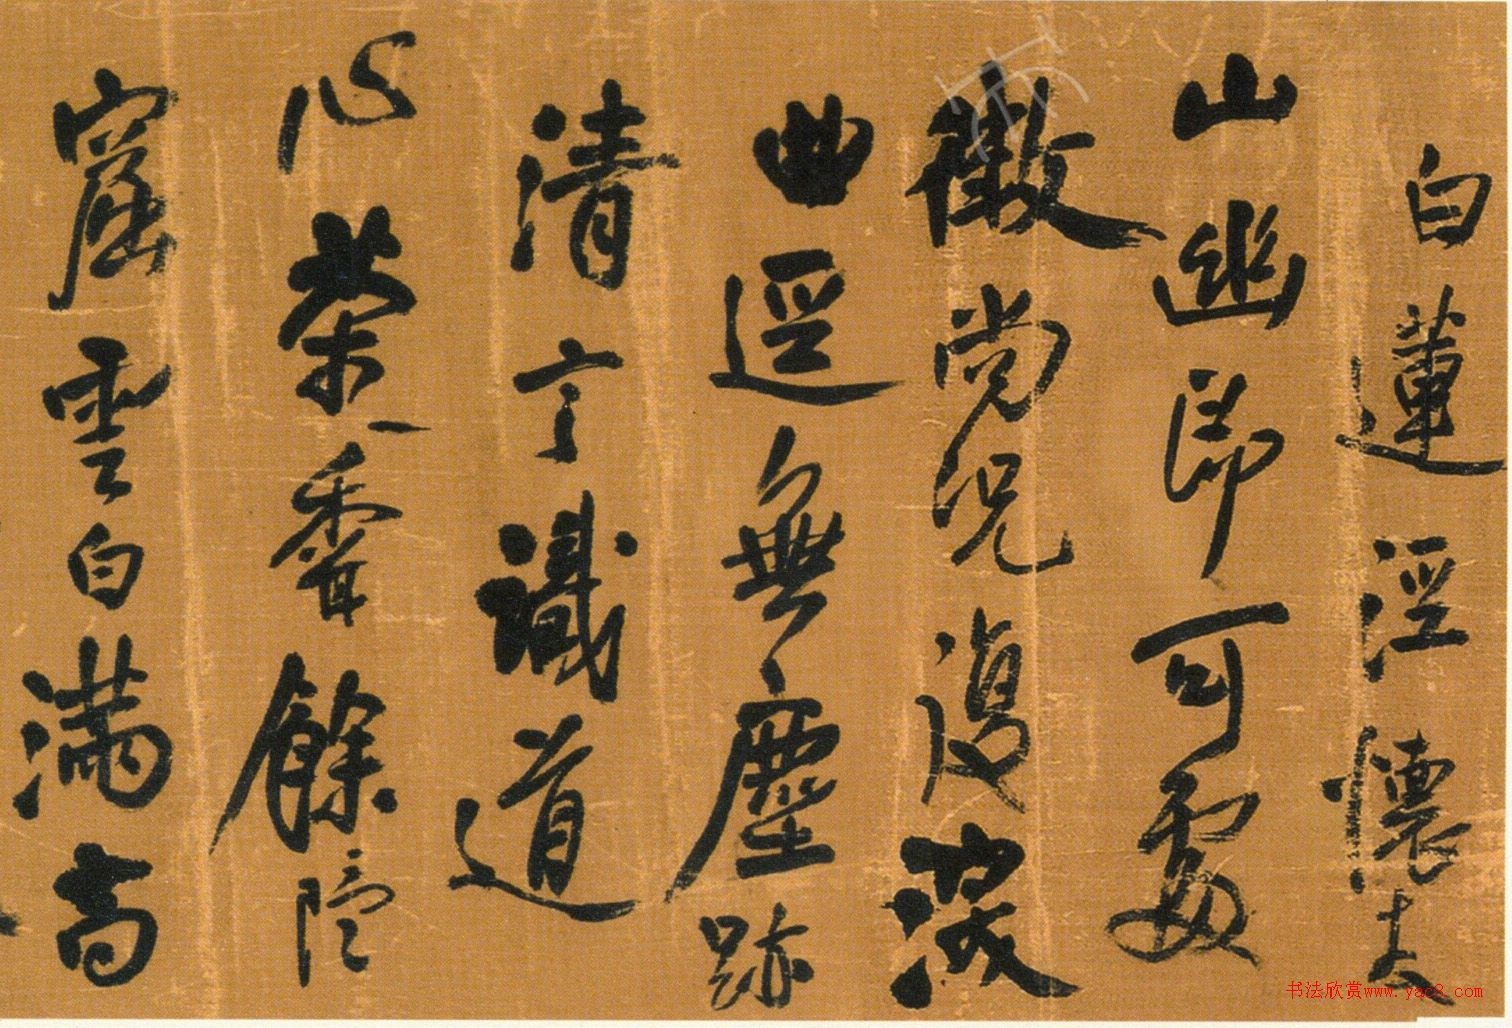 白蓮涇懷上人
山幽即可處
微尚況復深
曲逕無塵跡
清言識道
心茶香餘隱
窟雲白滿高
书法欣赏www.yac8.com